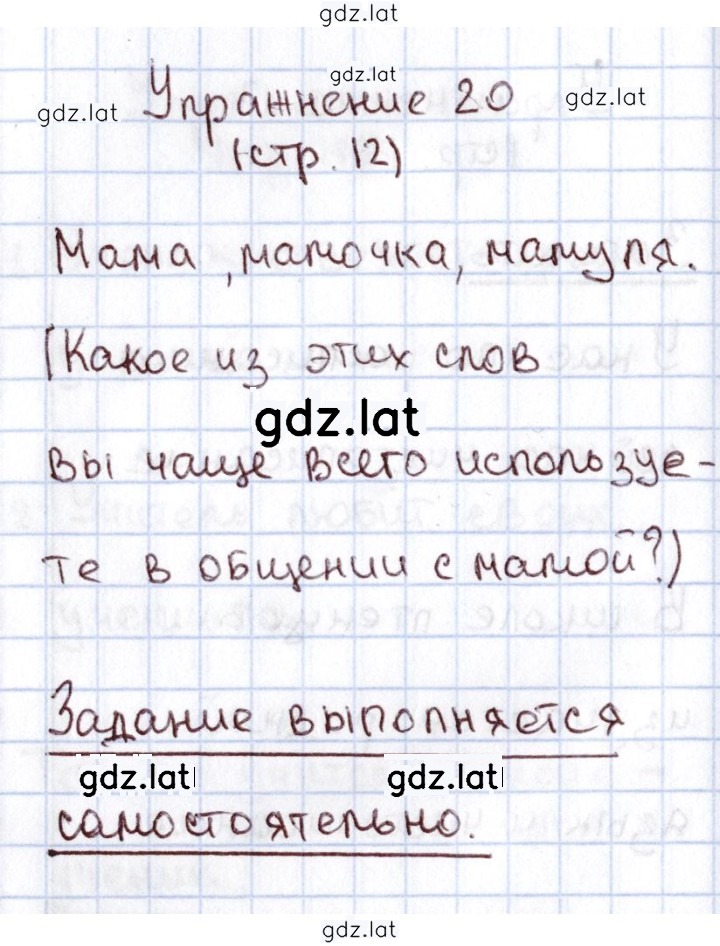 gdz.lat
gdz.lat
gdz.lat
gdz.lat
Упражнение 20
(стр. 12)
Мама, мамочка, мамуля.
(Какое из этих слов
gdz.lat
вы чаще всего используе-
те в общении с мамой?)
Задание выполняется
gdz.lat
gdz.lat
самостоятельно.
gdz.lat